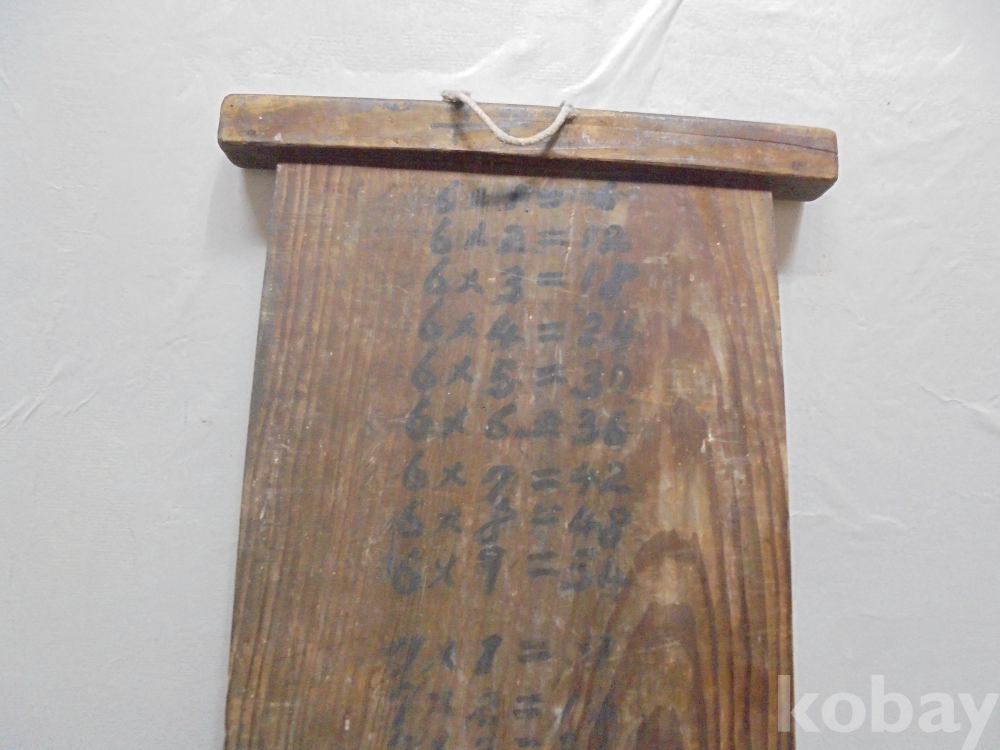 6 × 1 = 6
6 × 2 = 12
6 × 3 = 18
6 × 4 = 24
6 × 5 = 30
6 × 6 = 36
6 × 7 = 42
6 × 8 = 48
6 × 9 = 54
7 × 1 = 7
7 × 2 = 14
kobay